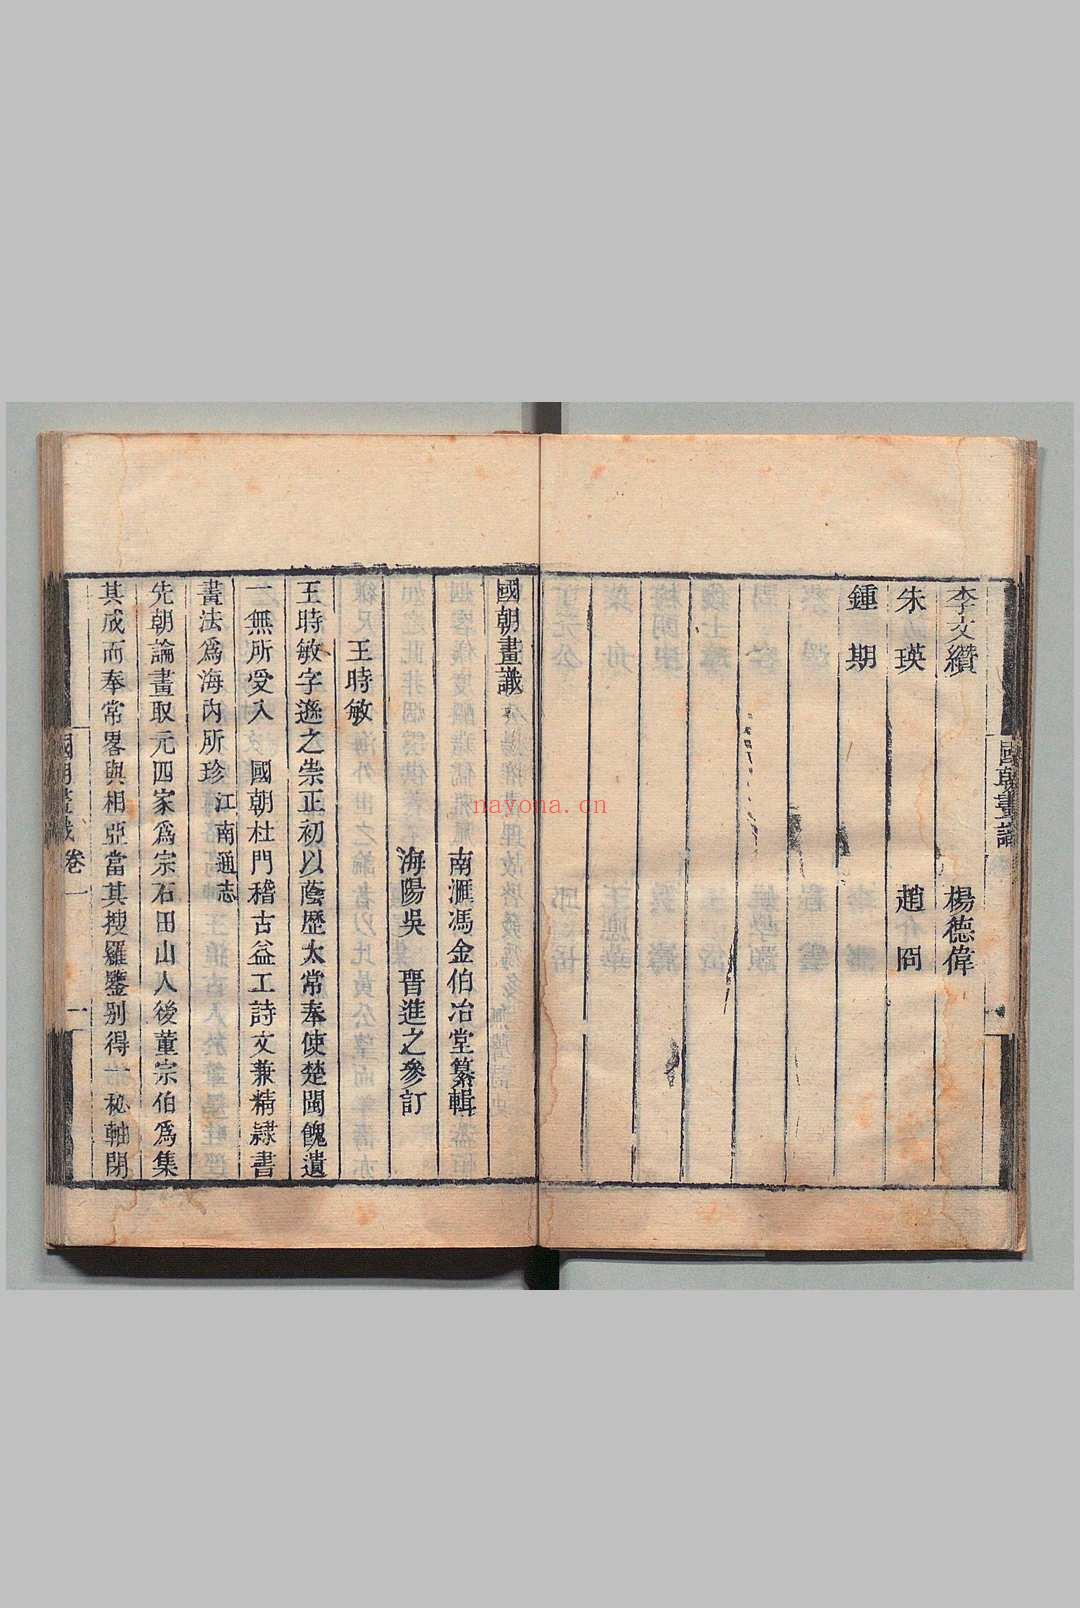 國朝畫識
李文纘 楊德偉
朱瑛 趙冏
鍾期
國朝畫識
南滙馮金伯冶堂纂輯
海陽吳 晉進之參訂
王時敏
王時敏字遜之崇正初以蔭歷太常奉使楚閩餽遺
一無所受入 國朝杜門稽古益工詩文兼精隷書
畫法爲海內所珍 江南通志
先朝論畫取元四家爲宗石田山人後董宗伯爲集
其成而奉常畧與相亞當其搜羅鑒別得一秘軸閉
國朝畫識 卷一 一
nayona.cn